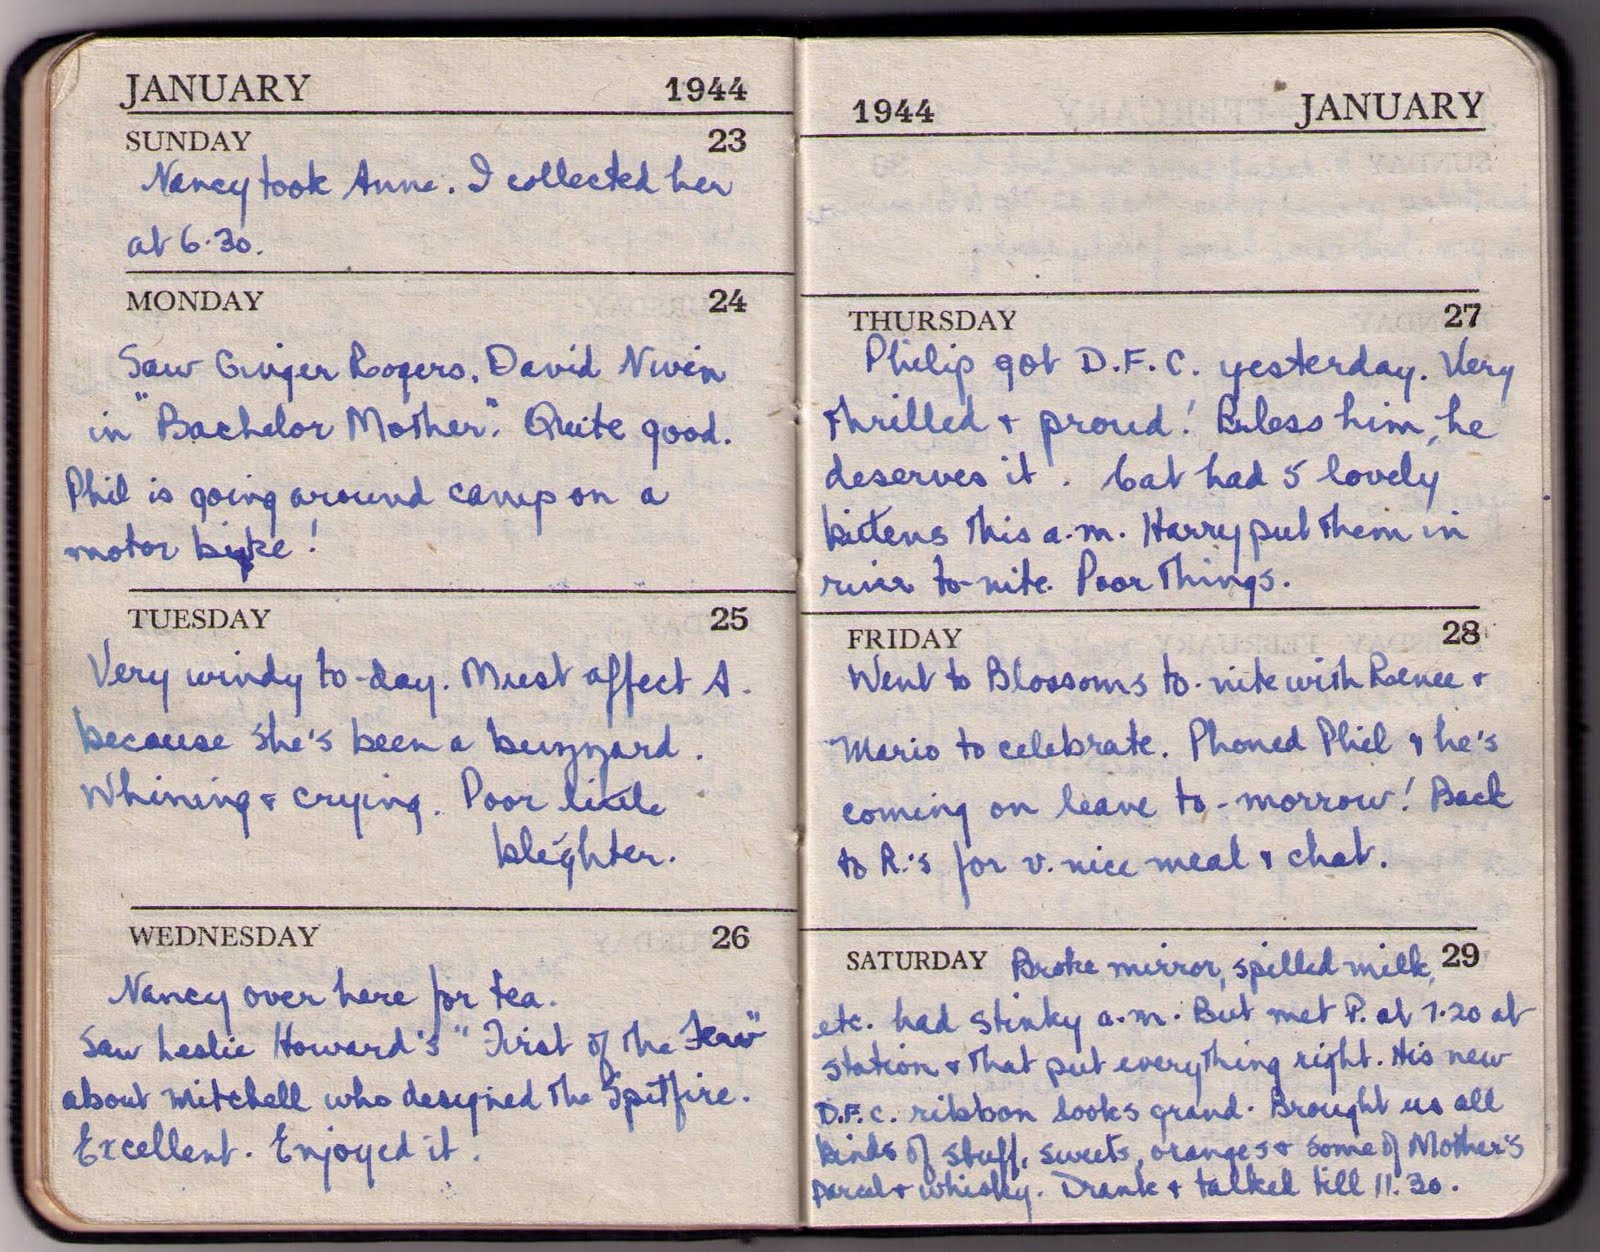 JANUARY 1944
SUNDAY 23
Nancy took Anne. I collected her
at 6.30.
MONDAY 24
Saw Ginger Rogers, David Niven
in "Bachelor Mother". Quite good.
Phil is going around camp on a
motor bike!
TUESDAY 25
Very windy to-day. Must affect A.
because she's been a buzzard.
Whining & crying. Poor little
blighter.
WEDNESDAY 26
Nancy over here for tea.
Saw Leslie Howard's "First of the Few"
about Mitchell who designed the Spitfire.
Excellent. Enjoyed it.
1944 JANUARY
THURSDAY 27
Philip got D.F.C. yesterday. Very
thrilled & proud! Bless him, he
deserves it. Cat had 5 lovely
kittens this a.m. Harry put them in
river to-nite. Poor things.
FRIDAY 28
Went to Blossoms to-nite with Renee &
Mario to celebrate. Phoned Phil & he's
coming on leave to-morrow! Back
to R.'s for v. nice meal & chat.
SATURDAY 29
Broke mirror, spilled milk,
etc. had stinky a.m. But met P. at 7.20 at
station & that put everything right. His new
D.F.C. ribbon looks grand. Brought us all
kinds of stuff, sweets, oranges & some of Mother's
parcel & whisky. Drank & talked till 11.30.